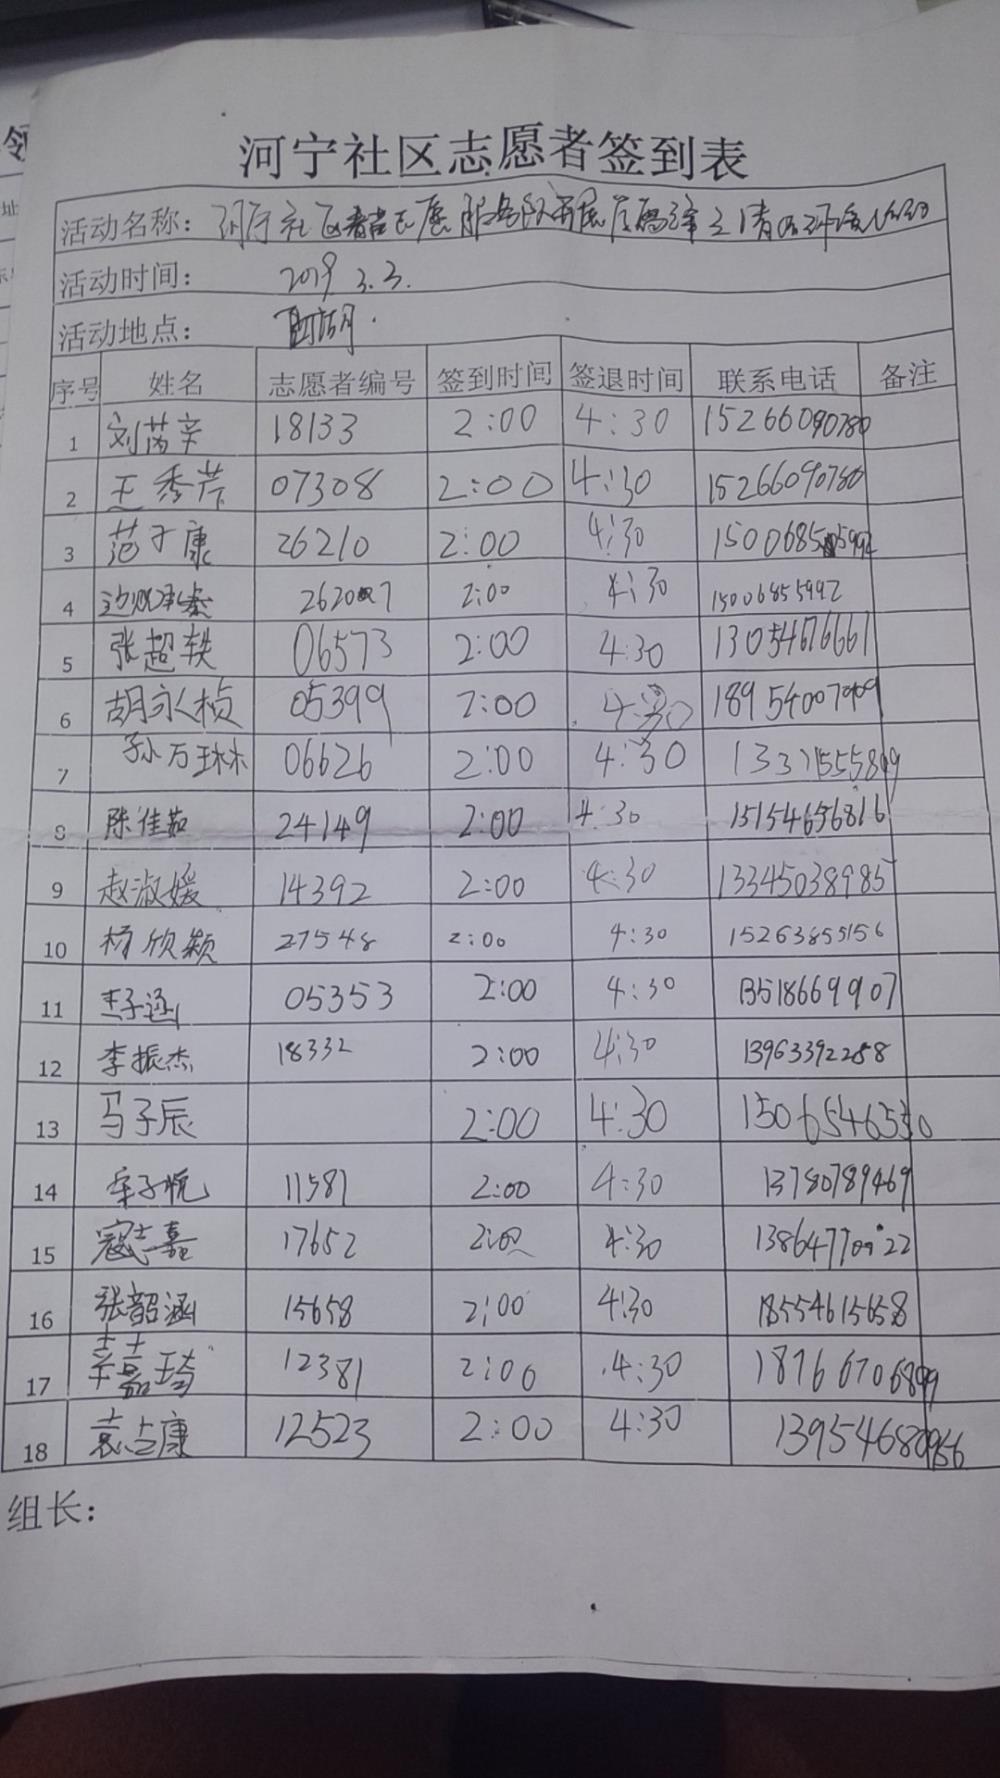 河宁社区志愿者签到表
活动名称： 河宁社区 志愿服务队开展
活动时间： 2019 3.3.
活动地点：
序号 姓名 志愿者编号 签到时间 签退时间 联系电话 备注
1 刘芮辛 18133 2:00 4:30 15266090780
2 王秀芹 07308 2:00 4:30 15266090780
3 范子康 26210 2:00 4:30
4 2:00 4:30 15006855992
5 张超轶 06573 2:00 4:30 13054676661
6 胡永桢 05399 2:00 4:30
7 孙万琳 06626 2:00 4:30
8 陈佳茹 24149 2:00 4:30 15154656816
9 赵淑媛 14392 2:00 4:30 13345038985
10 杨欣颖 27548 2:00 4:30 15263855156
11 李子涵 05353 2:00 4:30 13518669907
12 李振杰 18332 2:00 4:30 13963392258
13 马子辰 2:00 4:30 15065465530
14 牟子悦 11581 2:00 4:30 13780789469
15 寇志嘉 17652 2:00 4:30
16 张韶涵 15658 2:00 4:30 18554615658
17 綦嘉琦 12381 2:00 4:30 18766706899
18 袁志康 12523 2:00 4:30
组长：